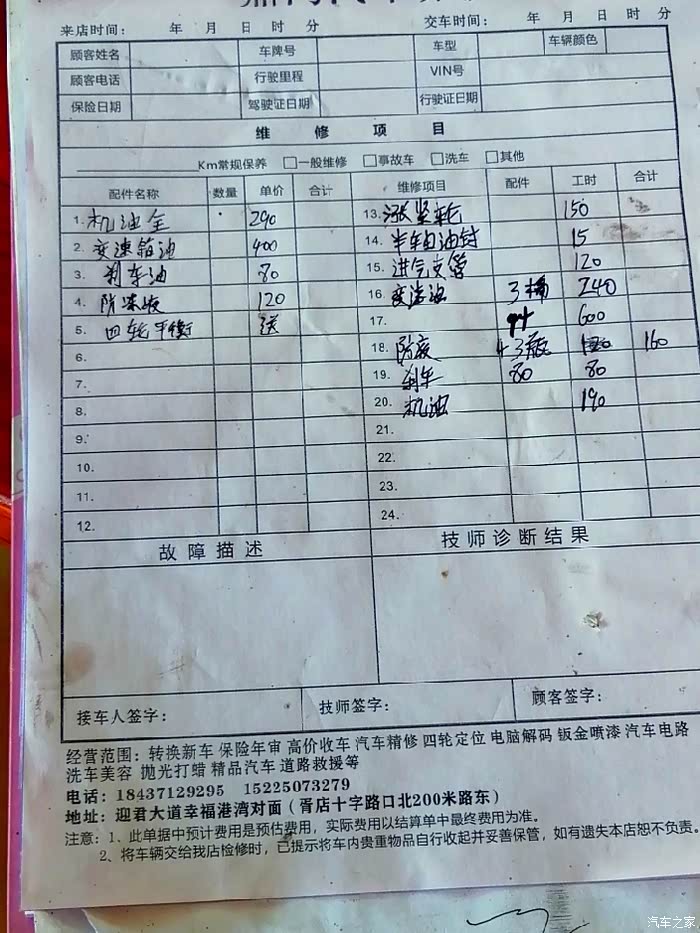 来店时间： 年 月 日 时 分 交车时间： 年 月 日 时 分
顾客姓名 车牌号 车型 车辆颜色
顾客电话 行驶里程 VIN号
保险日期 驾驶证日期 行驶证日期
维修项目
Km常规保养 □一般维修 □事故车 □洗车 □其他
配件名称 数量 单价 合计 维修项目 配件 工时 合计
1.机油全 290 13.涨紧轮 150
2.变速箱油 400 14.半轴油封 15
3.刹车油 80 15.进气支管 120
4.防冻液 120 16.变速油 3桶 240
5.四轮平衡 送 17. 600
6. 18.防液 3瓶 160
7. 19.刹车 80 80
8. 20.机油 190
9. 21.
10. 22.
11. 23.
12. 24.
故障描述 技师诊断结果
接车人签字： 技师签字： 顾客签字：
经营范围：转换新车 保险年审 高价收车 汽车精修 四轮定位 电脑解码 钣金喷漆 汽车电路
洗车美容 抛光打蜡 精品汽车 道路救援等
电话：18437129295 15225073279
地址：迎君大道幸福港湾对面（胥店十字路口北200米路东）
注意：1、此单据中预计费用是预估费用，实际费用以结算单中最终费用为准。
2、将车辆交给我店检修时，已提示将车内贵重物品自行收起并妥善保管，如有遗失本店恕不负责。
汽车之家